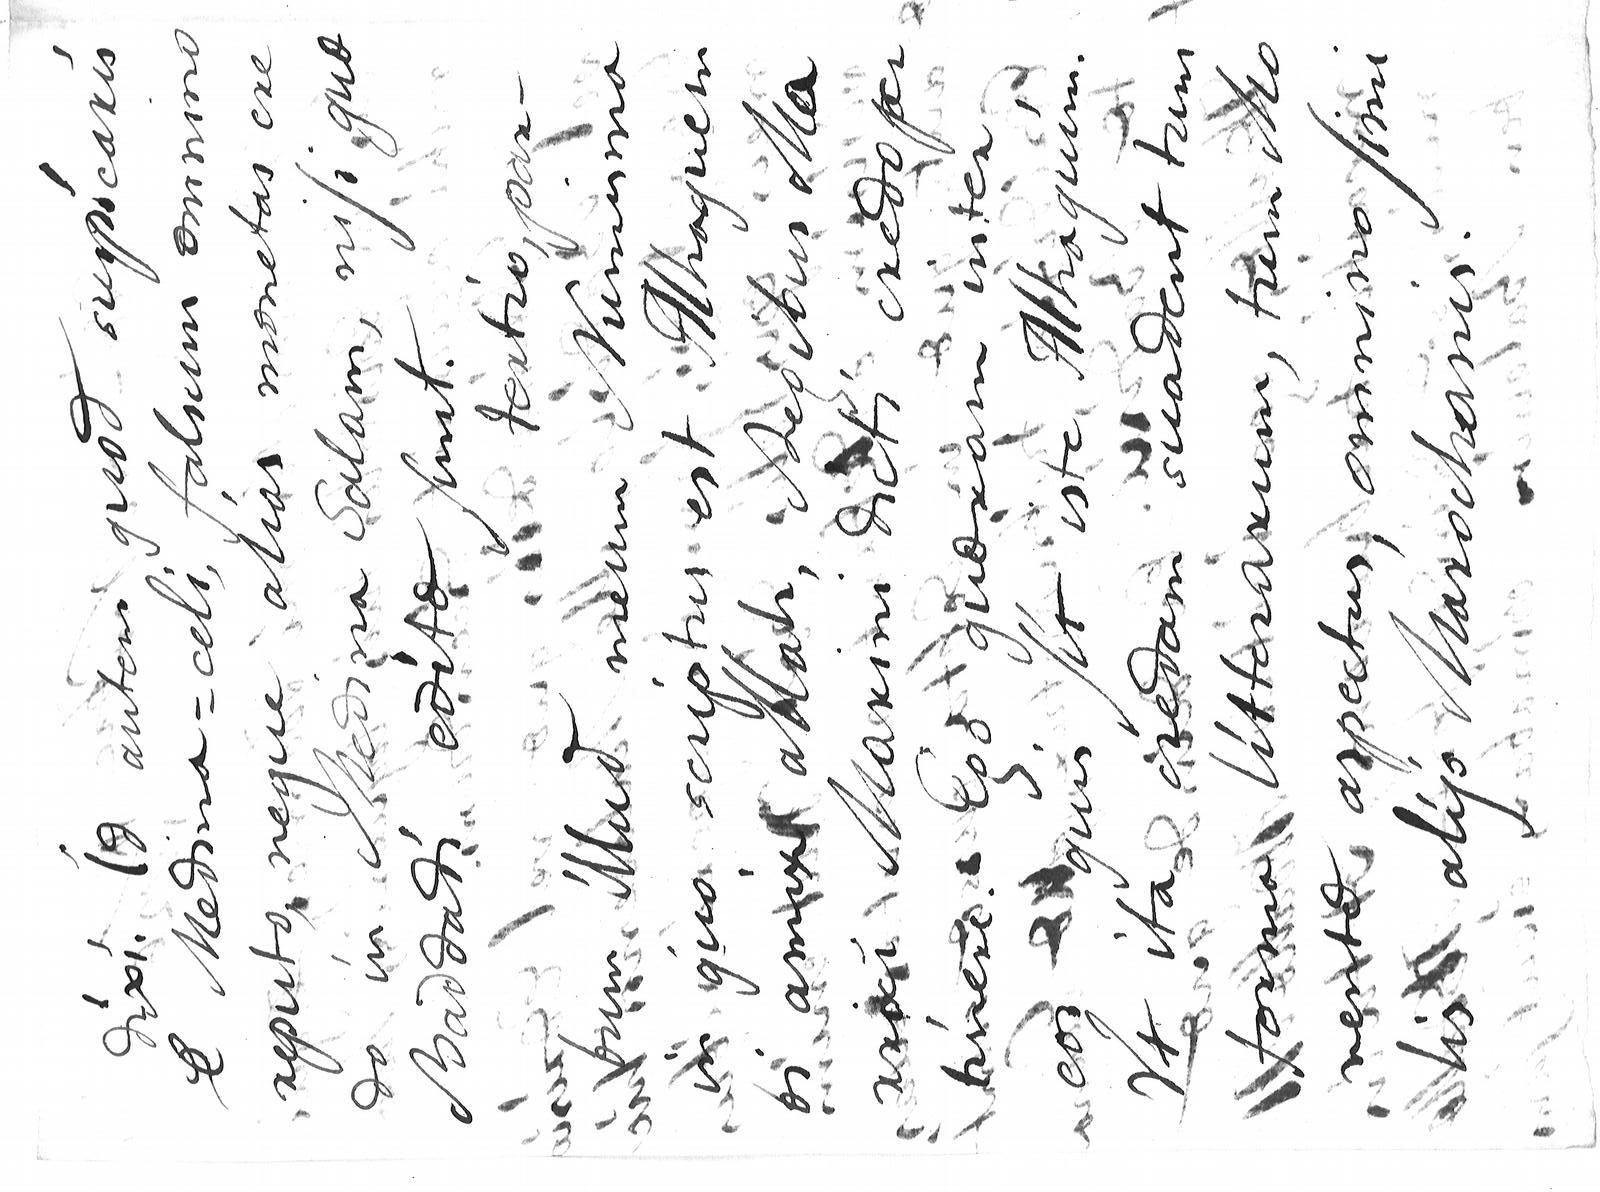 dixi. Id autem quod supicaris
e Medina=celi, falsum omnino
reputo, neque alias monetas cre
do in Medina Salam, nisi quæ
Baddadi editæ sunt.
tertio, par-
bum illud meum Numisma
in quo scriptus est Alhaquem
si amir allah, Regibus Ma
xini dicti credo per
tinere. Ego quoxam inter
eos quis sit iste Alhaquim.
Ut ita credam suadent tum
forma litterarum, tum Mo
netæ aspectus, omnino simi
lis alijs Marochanis.